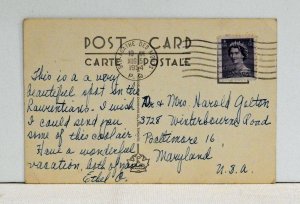 POST CARD
CARTE POSTALE
STE AGATHE DES MONTS
10 AM
1954
P.Q.
This is a a very
beautiful spot in the
Laurentians. I wish
I could send you
some of this cool air
Have a wonderful
vacation, both of you
Ethel
Dr & Mrs. Harold
3728 Winterbourne Road
Baltimore 16
Maryland
U.S.A.